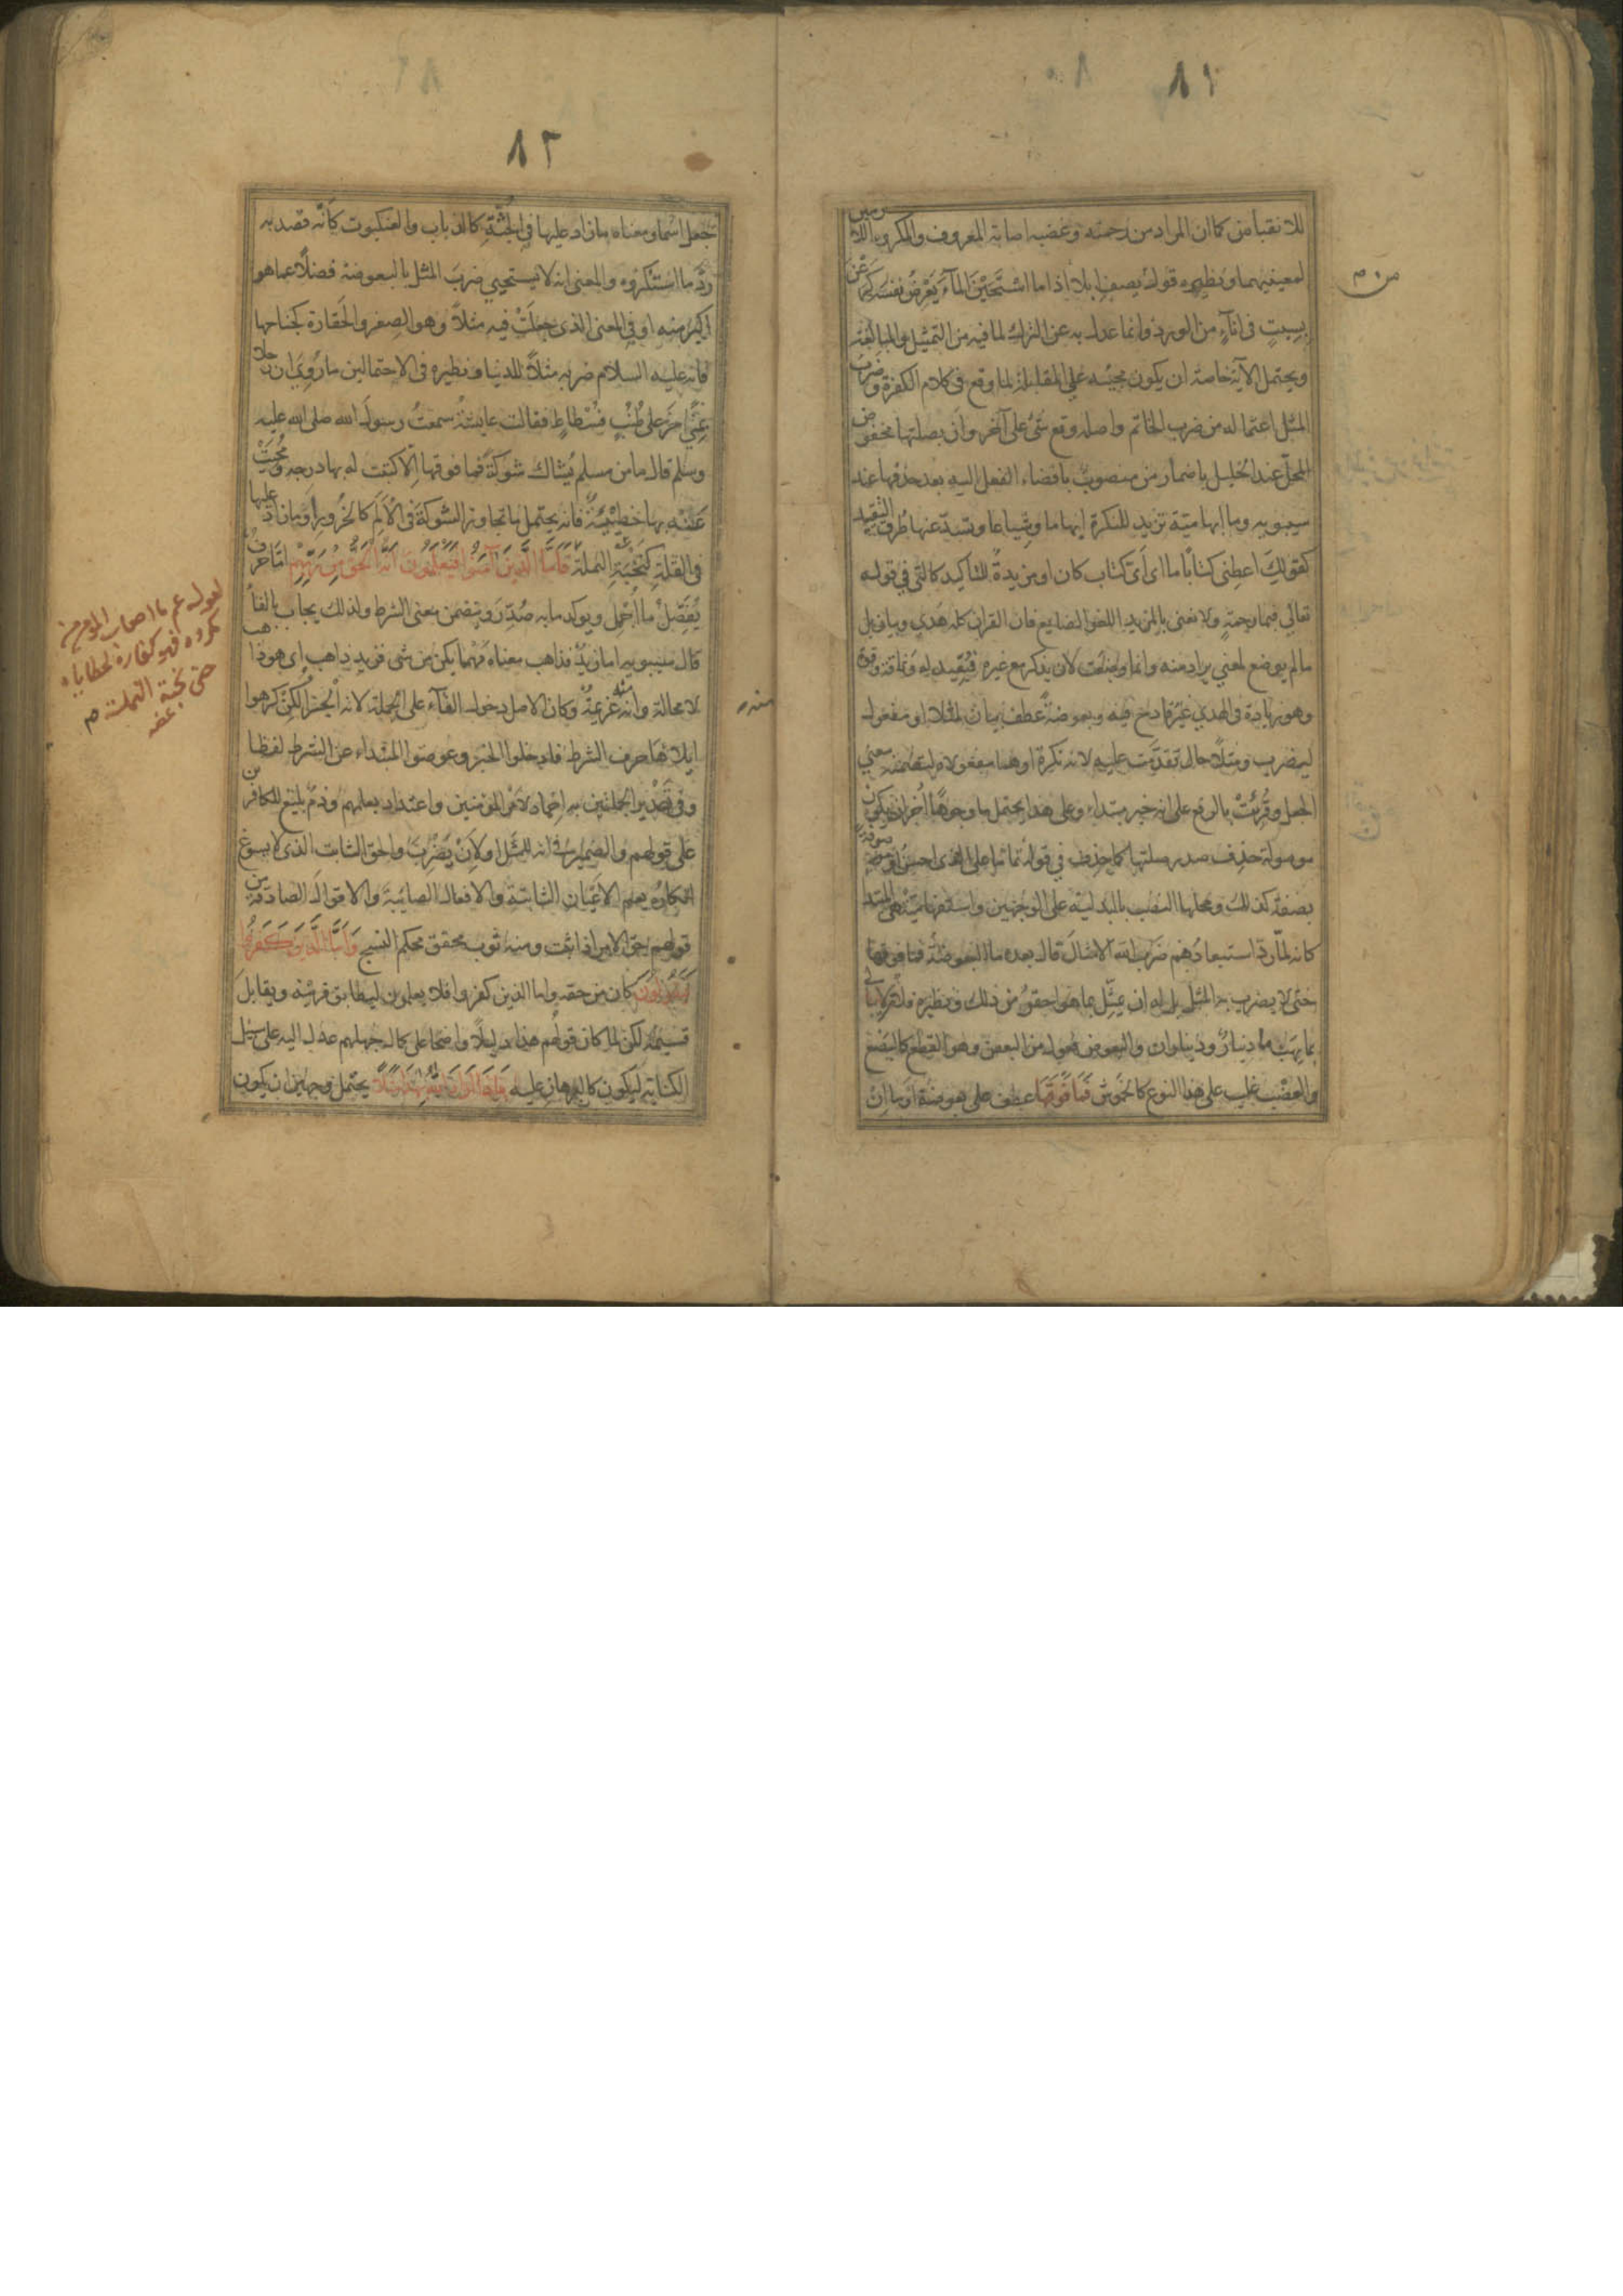 ٨١
للانقباض كما ان المراد من رحمته وغضبه اصابة المعروف والمكروه اللازمين
لمعنييهما ونظيره قوله يصف ابلا اذا ما اسْتَحَيْنَ المآءَ يَعْرِضُ نفسَه كَرِعْنَ
من م
بِسِبتٍ فى انآءٍ من الورد وانما عدل به عن الترك لما فيه من التمثيل والمبالغة
ويحتمل الآية خاصة ان يكون مجيئه على المقابلة لما وقع فى كلام الكفرة وضربُ
المثل اعتماله من ضرب الخاتم واصله وقع شئ على آخر وأن بصلتها مخفوض
المحلّ عند الخليل باضمار من منصوبٌ بافضاء الفعل اليه بعد حذفها عند
سيبويه وما ابهامية تزيد للنكرة ابهاما وشياعا وتسدّ عنها طُرق التقييد
كقولك اعطِنى كتابًا ما اى أىّ كتاب كان او مزيدةٌ للتأكيد كالتى فى قوله
تعالى فبما رحمةٍ ولا نعنى بالمزيد اللغو الضايع فان القرآن كله هدى وبيان بل
ما لم يوضع لمعنى يراد منه وانما وضعت لان يذكر مع غيره فيُفيد له وثاقة وقوة
وهو زيادة فى الهدى غيرُ قادح فيه وبعوضةً عطف بيان لمثلا او مفعول
ليضرب ومثلاً حال تقدّمت عليه لانه نكرة او هما مفعولاه لتضمنه معنى
الجعل وقُرِئَتْ بالرفع على انه خبر مبتداء وعلى هذا يحتمل ما وجوهًا اُخَران يكون
موصولة حذِف صدر صلتها كما حذِف فى قوله تماما على الذى احسنُ او موصوفة
بصفة كذلك ومحلها النصب بالبدلية على الوجهين واستفهاميّة هى المبتدا
كانه لمّا ردّ استبعادَهم ضَرْبَ الله الامثالَ قال بعده ما البعوضةُ فما فوقها
حتى لا يضرب به المثل بل له ان يمثّل بما هو احقرُ من ذلك ونظيره فلان لا يبالى
بما يهَب ما دينارٌ وديناران والبعوض فعول من البعض وهو القطع كالبَضْع
والعضْب غلب على هذا النوع كالخَموش فَمَا فَوْقَهَا عطف على بعوضة او ما ان
٨٢
جُعل اسما ومعناه ما زاد عليها فى الجُثّةِ كالذباب والعنكبوت كانّه قصد به
ردَّ ما استنكروه والمعنى انه لا يستحيى ضربَ المثل بالبعوضة فضلًا عما هو
اكبرُ منه او فى المعنى الذى جعلَتْ فيه مثلاً وهو الصِغر والحَقارة كجناحها
فانه عليه السلام ضربه مثلاً للدنيا ونظيره فى الاحتمالين ما رُوِىَ ان رجلا
بمِنًى خرّ على طُنُبِ فُسْطاطٍ فقالت عايشةُ سمعتُ رسولَ الله صلى الله عليه
وسلم قال ما من مسلم يُشاك شوكةً فما فوقها اِلّا كتبت له بها درجه ومُحِيَتْ
عَنْه بها خطِيْئةٌ فانه يحتمل ما تجاوز الشوكةَ فى الاَلَم كالخُرورِ او ما زاد عليها
فى القلة كنَخْبَةِ النملة فَاَمَّا الَّذِينَ آمَنُوا فَيَعْلَمُونَ اَنَّهُ الْحَقُّ مِنْ رَبِّهِمْ امّا حرفُ
لقوله عم ما اصاب المؤمن من
مكروه فهو كفارة لخطاياه
حتى نخبة النملة م
عضه
يُفَصِّلُ ما اُجمِل ويوكد ما به صُدِّرَ ويتضمن معنى الشرط ولذلك يجاب بالفا
قال سيبويه اما زيدٌ فذاهب معناه مَهْما يكن من شئ فزيد ذاهب اى هو ذاهب
لا محالة وانه منه عزيمةٌ وكان الاصل دخول الفآء على الجملة لانها الجزآُ لكن كرهوا
منه
ايلاءَها حرف الشرط فادخلوا الخبر وعوضوا المبتداء عن الشرط لفظا
وفى تَصْدِير الجملتين به اِحْماد لاَمْر المؤمنين واعتداد بعلمهم وذمٌّ بليغ للكافرين
على قولهم والضميرُ فى انه للمثل او لِاَنْ يَضْرِبَ والحق الثابت الذى لا يسوغ
انكارُه يعم الاَعْيان الثابتة والافعال الصائبة والاقوالَ الصادقة من
قولهم حق الامر اذا ثبت ومنه ثوب محقق محكم النسج وَاَمَّا الَّذِينَ كَفَرُوا
فَيَقُولُونَ كان من حقه واما الذين كفروا فلا يعلمون ليطابق قرينه ويقابلَ
قسيمه لكن لما كان قولُهم هذا دليلاً واضحا على كمال جهلهم عدل اليه على سبيل
الكناية ليكون كالبرهان عليه مَاذَا اَرَادَ اللّٰهُ بِهَذَا مَثَلًا يحتمل وجهين ان يكون